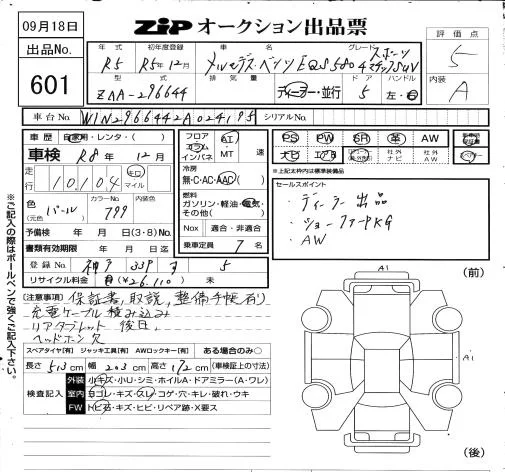 09月18日
ZIP オークション出品票
評価点
5
出品No.
601
年式 初年度登録 車名 グレード
R5 R5年12月 メルセデス・ベンツ EQS 580 4マチックSUV スポーツ
型式 排気量 ドア ハンドル
ZAA-296644 ディーラー・並行 5 左・右
内装
A
車台No. W1N2966442A024195 シリアルNo.
車歴 自家用・レンタ・( )
車検 R8年 12月
走行 10,104 キロ マイル
色 (元色) パール カラーNo. 799 内装色
予備検 年 月 日(3・8)No.
書類有効期限 年 月 日迄
登録No. 神戸 339 す 5
リサイクル料金 有(¥26,110) 未
フロア コラム インパネ AT MT 速
冷房 無・C・AC・AAC( )
燃料 ガソリン・軽油・電気・その他( )
Nox 適合・非適合
乗車定員 7名
PS PW SR 革 AW
ナビ エアB 社外ナビ 社外AW
※上記太枠内は標準装備品
セールスポイント
・ディーラー出品
・ショーファーPKG
・AW
(注意事項) 保証書,取説,整備手帳有り
充電ケーブル積み込み
リアタブレット 後日,
ヘッドホン欠
スペアタイヤ[有] ジャッキ工具[有] AWロックキー[有] ある場合のみ○
長さ 513cm 幅 203cm 高さ 172cm (車検証上の寸法)
検査記入
外装 小キズ・小U・シミ・ホイルA・ドアミラー(A・ワレ)
室内 ヨゴレ・キズ・スレ・コゲ・穴・キレ・破れ・ウキ
FW トビ石・キズ・ヒビ・リペア跡・X要ス
※ご記入の際はボールペンで強くご記入下さい。
A1
(前)
A1
(後)